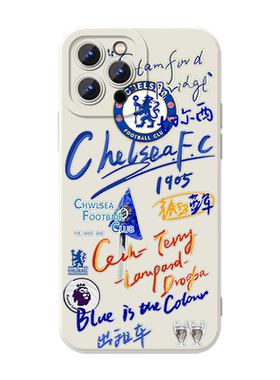 Stamford
Bridge
CHELSEA
FOOTBALL CLUB
切尔西
Chelsea F.C
1905
CHWLSEA
FOOTBALL
CLUB
THE SHED END
Cech - Terry
-Lampard-
Drogba
CHELSEA
Blue is the Colour
出租车